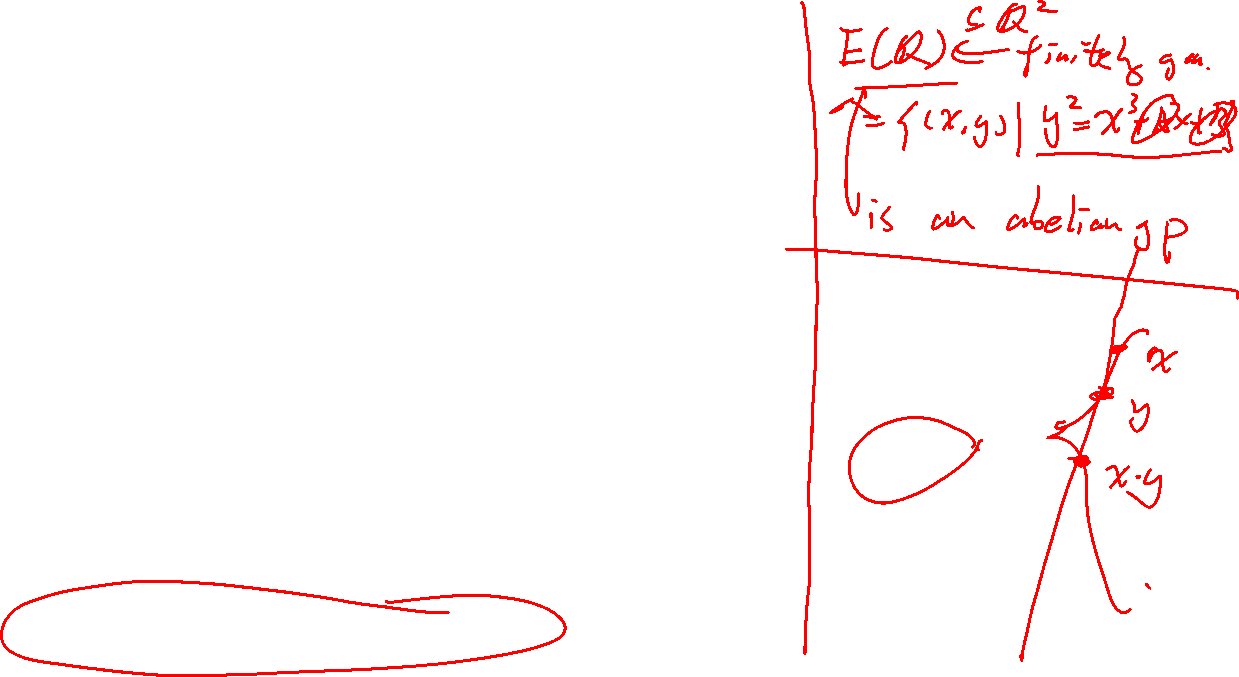 ⊆ ℚ²
E(ℚ) ← finitely gen.
= {(x,y) | y² = x³
is an abelian gp
x
y
x·y